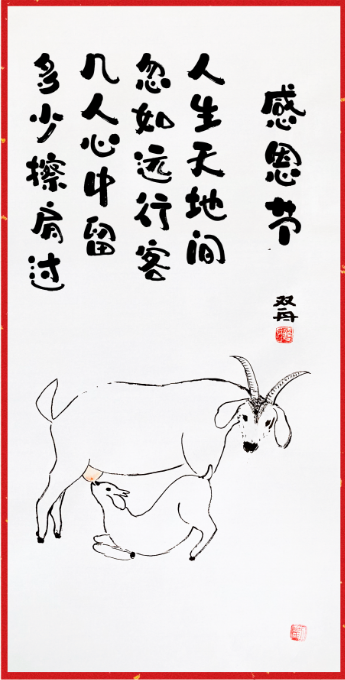 感恩节
双丹
人生天地间
忽如远行客
几人心中留
多少擦肩过